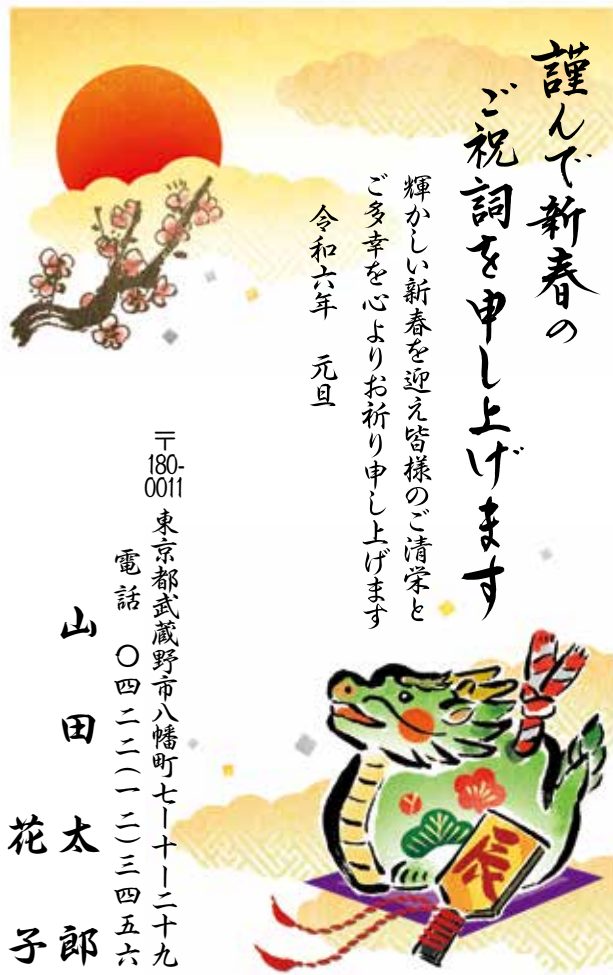 謹んで新春の
ご祝詞を申し上げます
輝かしい新春を迎え皆様のご清栄と
ご多幸を心よりお祈り申し上げます
令和六年　元旦
〒180-0011 東京都武蔵野市八幡町七ー十ー二十九
電話　〇四二二(一二)三四五六
山田太郎
花子
辰